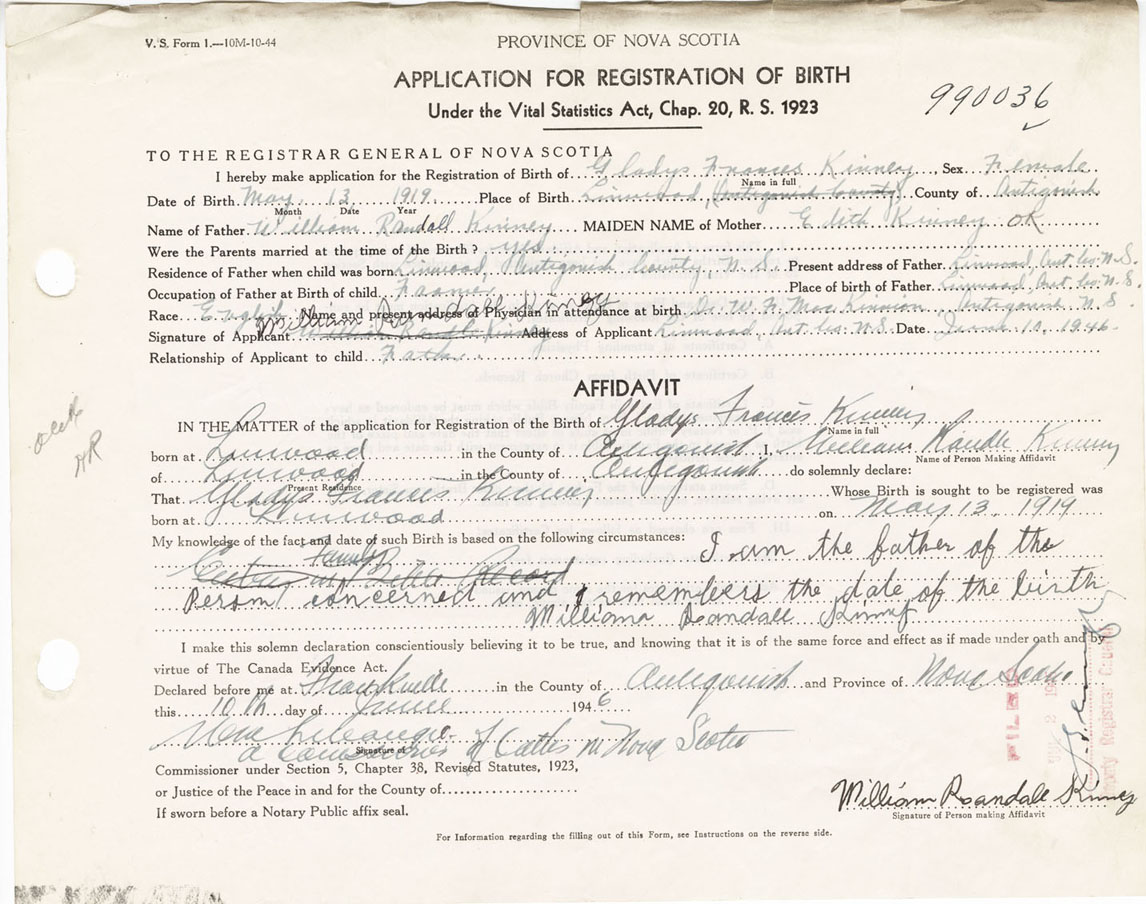 V. S. Form 1.—10M-10-44
PROVINCE OF NOVA SCOTIA
APPLICATION FOR REGISTRATION OF BIRTH
990036
Under the Vital Statistics Act, Chap. 20, R. S. 1923
TO THE REGISTRAR GENERAL OF NOVA SCOTIA
I hereby make application for the Registration of Birth of Gladys Frances Kinney Sex Female
Name in full
Date of Birth May 13 1919 Place of Birth Linwood, Antigonish County, County of Antigonish
Month Date Year
Name of Father William Randall Kinney MAIDEN NAME of Mother Edith Kinney OK
Were the Parents married at the time of the Birth? yes
Residence of Father when child was born Linwood, Antigonish County, N. S. Present address of Father Linwood, Ant. Co. N. S.
Occupation of Father at Birth of child Farmer Place of birth of Father Linwood, Ant. Co. N. S.
Race English Name and present address of Physician in attendance at birth Dr. W. F. MacKinnon Antigonish N. S.
William Randall Kinney
Signature of Applicant Address of Applicant Linwood, Ant. Co. N. S. Date June 10, 1946
Relationship of Applicant to child Father
AFFIDAVIT
IN THE MATTER of the application for Registration of the Birth of Gladys Francis Kinney
Name in full
born at Linwood in the County of Antigonish I, William Randle Kinney
Name of Person Making Affidavit
of Linwood in the County of Antigonish do solemnly declare:
Present Residence
That Gladys Frances Kinney Whose Birth is sought to be registered was
born at Linwood on May 13, 1919
My knowledge of the fact and date of such Birth is based on the following circumstances: I am the father of the
Family Record
Person concerned and I remembers the date of the birth
William Roandall Kinney
I make this solemn declaration conscientiously believing it to be true, and knowing that it is of the same force and effect as if made under oath and by
virtue of The Canada Evidence Act.
Declared before me at in the County of Antigonish and Province of Nova Scotia
this 10th day of June 1946
a of in Nova Scotia
Signature of
Commissioner under Section 5, Chapter 38, Revised Statutes, 1923,
or Justice of the Peace in and for the County of
If sworn before a Notary Public affix seal.
William Roandall Kinney
Signature of Person making Affidavit
For Information regarding the filling out of this Form, see Instructions on the reverse side.
FILED
Deputy Registrar General